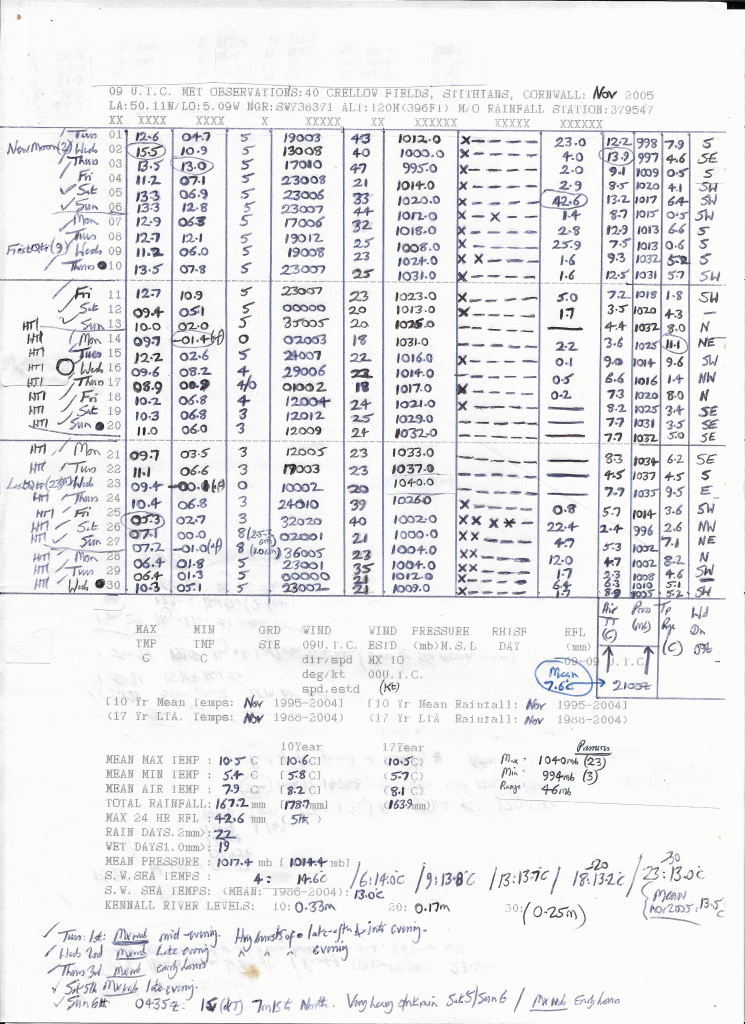 09 U.T.C. MET OBSERVATIONS:40 CRELLOW FIELDS, STITHIANS, CORNWALL: Nov 2005
LA:50.11N/LO:5.09W NGR:SW738371 ALT:120M(396FT) M/O RAINFALL STATION:379547
XX XXXX XXXX X XXXXX XX XXXXXX XXXXX XXXXXX
Tues 01 12.6 04.7 5 19003 43 1012.0 x---- 23.0 12.2 998 7.9 S
New Moon (2) Wed 02 15.5 10.9 5 13008 40 1000.0 x---- 4.0 13.9 997 4.6 SE
Thurs 03 13.5 13.0 5 17010 47 995.0 x---- 2.0 9.1 1009 0.5 S
Fri 04 11.2 07.1 5 23008 21 1014.0 x---- 2.9 8.5 1020 4.1 SW
Sat 05 13.3 06.9 5 23006 33 1020.0 x---- 42.6 13.2 1017 6.4 SW
Sun 06 13.3 12.8 5 23007 44 1012.0 x-x--- 1.4 8.7 1015 0.5 SW
Mon 07 12.9 06.3 5 17006 32 1018.0 x---- 2.8 12.9 1013 6.6 S
Tues 08 12.7 12.1 5 19012 25 1008.0 x---- 25.9 7.5 1013 0.6 S
First Qtr (9) Wed 09 11.2 06.0 5 19008 23 1024.0 xx--- 1.6 9.3 1032 5.2 S
Thurs 10 13.5 07.8 5 23007 25 1031.0 x---- 1.6 12.5 1031 5.7 SW
Fri 11 12.7 10.9 5 23007 23 1023.0 x---- 5.0 7.2 1018 1.8 SW
Sat 12 09.4 05.1 5 00000 20 1013.0 x---- 1.7 3.5 1020 4.3 —
HTI Sun 13 10.0 02.0 5 35005 20 1025.0 — 4.4 1032 8.0 N
HTI Mon 14 09.7 -01.4 0 02003 18 1031.0 2.2 3.6 1025 11.1 NE
HTI Tues 15 12.2 02.6 5 24007 22 1016.0 x---- 0.1 9.0 1014 9.6 SW
HTI Wed 16 09.6 08.2 4 29006 22 1014.0 x---- 0.5 6.6 1016 1.4 NW
HTI Thurs 17 08.9 4/0 01002 18 1017.0 x 0.2 7.3 1020 8.0 N
HTI Fri 18 10.2 06.8 4 12004 24 1021.0 x---- — 8.2 1025 3.4 SE
HTI Sat 19 10.3 06.8 3 12012 25 1029.0 — 7.7 1031 3.5 SE
HTI Sun 20 11.0 06.0 3 12009 24 1032.0 — 7.7 1032 5.0 SE
HTI Mon 21 09.7 03.5 3 12005 23 1033.0 — 8.3 1034 6.2 SE
HTI Tues 22 11.1 06.6 3 17003 23 1037.0 — 4.5 1037 4.5 S
Last Qtr (23) Wed 23 09.4 0 10002 20 1040.0 — 7.7 1035 9.5 E
HTI Thurs 24 10.4 06.8 3 24010 39 1026.0 0.8 5.7 1014 3.6 SW
HTI Fri 25 05.3 02.7 3 32020 40 1002.0 xxxx 22.4 2.4 996 2.6 NW
HTI Sat 26 07.1 00.0 8 02001 21 1000.0 xx--- 4.7 5.3 1002 7.1 NE
HTI Sun 27 07.2 -01.0 8 36005 23 1004.0 xx--- 12.0 4.7 1002 8.2 N
HTI Mon 28 06.4 01.8 5 23001 35 1004.0 xx--- 1.7 2.3 1008 4.6 SW
HTI Tues 29 06.4 01.3 5 00000 21 1012.0 x---- 6.4 6.3 1010 5.1 —
HTI Wed 30 10.3 05.1 5 23002 21 1009.0 xx--- 1.5 8.9 1005 5.2 SW
MAX MIN GRD WIND WIND PRESSURE RHISF RFL Air Press Tp Wd
TMP TMP STE 09U.T.C. ESTD (mb)M.S.L DAT (mm) TT (mb) Rge Dn
C C dir/spd MX 10 09-09 U.T.C. (C) (C) 09z
deg/kt 00U.T.C. Mean 7.6c 2100z
spd.estd (Kt)
[10 Yr Mean Temps: Nov 1995-2004] [10 Yr Mean Rainfall: Nov 1995-2004]
(17 Yr LTA. Temps: Nov 1988-2004) (17 Yr LTA Rainfall: Nov 1988-2004)
10Year 17Year Pressure
MEAN MAX TEMP : 10.5 C [10.6 C] (10.5 C) Max - 1040mb (23)
MEAN MIN TEMP : 5.4 C [5.8 C] (5.7 C) Min - 994mb (3)
MEAN AIR TEMP : 7.9 C [8.2 C] (8.1 C) Range - 46mb
TOTAL RAINFALL: 167.2 mm [178.7mm] (163.9mm)
MAX 24 HR RFL : 42.6 mm (5th)
RAIN DAYS.2mm>: 22
WET DAYS1.0mm>: 19
MEAN PRESSURE : 1017.4 mb [1014.4 mb]
S.W. SEA TEMPS : 4: 14.6c /6:14.0c /9:13.8c /13:13.7c /20 18:13.2c /30 23:13.0c
S.W. SEA TEMPS: (MEAN: 1986-2004): 13.0c (MEAN Nov 2005: 13.5c)
KENNALL RIVER LEVELS: 10: 0.33m 20: 0.17m 30: (0.25m)
Tues: 1st: mid-evening. Hvy bursts of late aftn & into evening.
Wed 2nd late evening " " " evening
Thurs 3rd early hours
Sat 5th late evening.
Sun 6th 0435z: 15 7mls North. Very heavy Sat 5/Sun 6 / Early hours